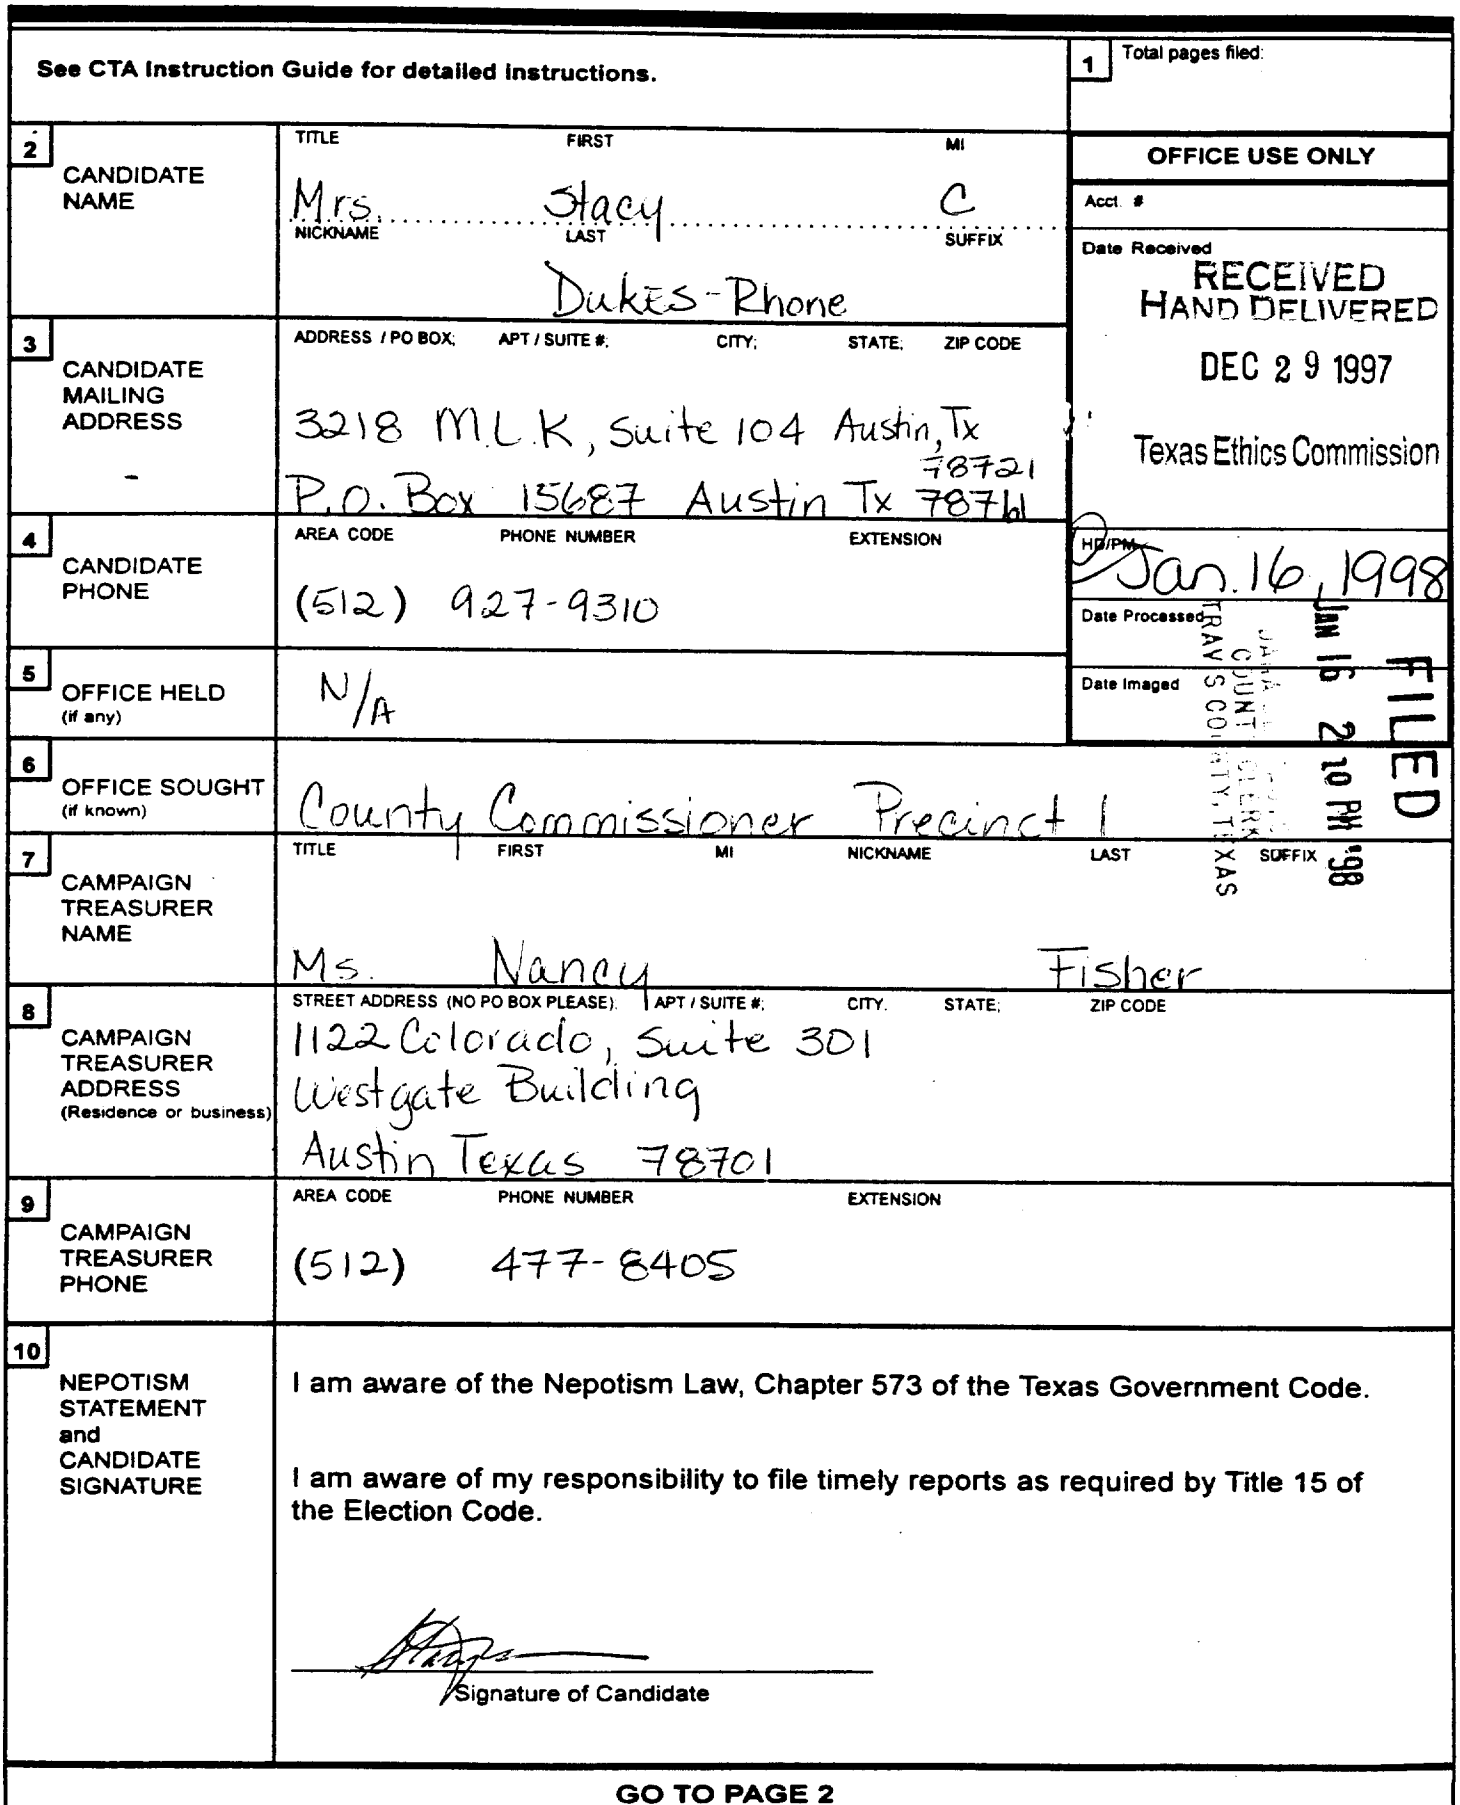 See CTA Instruction Guide for detailed instructions.
1 Total pages filed:
2 CANDIDATE NAME
TITLE FIRST MI
Mrs. Stacy C
NICKNAME LAST SUFFIX
Dukes-Rhone
OFFICE USE ONLY
Acct. #
Date Received
RECEIVED
HAND DELIVERED
DEC 29 1997
Texas Ethics Commission
3 CANDIDATE MAILING ADDRESS
ADDRESS / PO BOX; APT / SUITE #; CITY; STATE; ZIP CODE
3218 M.L.K, Suite 104 Austin, Tx
78721
P.O. Box 15687 Austin Tx 78761
HD/PM
Jan. 16, 1998
Date Processed
Date Imaged
FILED
JAN 16 2 10 PM '98
COUNTY CLERK
TRAVIS COUNTY, TEXAS
4 CANDIDATE PHONE
AREA CODE PHONE NUMBER EXTENSION
(512) 927-9310
5 OFFICE HELD
(if any)
N/A
6 OFFICE SOUGHT
(if known)
County Commissioner Precinct 1
7 CAMPAIGN TREASURER NAME
TITLE FIRST MI NICKNAME LAST SUFFIX
Ms. Nancy Fisher
8 CAMPAIGN TREASURER ADDRESS
(Residence or business)
STREET ADDRESS (NO PO BOX PLEASE); APT / SUITE #; CITY. STATE; ZIP CODE
1122 Colorado, Suite 301
Westgate Building
Austin Texas 78701
9 CAMPAIGN TREASURER PHONE
AREA CODE PHONE NUMBER EXTENSION
(512) 477-8405
10 NEPOTISM STATEMENT and CANDIDATE SIGNATURE
I am aware of the Nepotism Law, Chapter 573 of the Texas Government Code.
I am aware of my responsibility to file timely reports as required by Title 15 of
the Election Code.
Signature of Candidate
GO TO PAGE 2